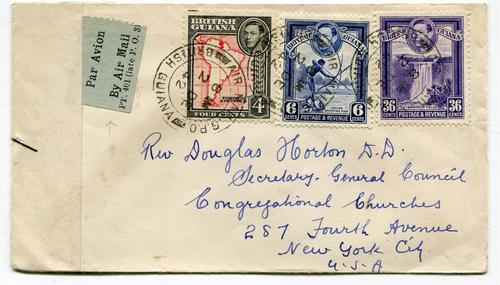 Par Avion
By Air Mail
PT. 401 (late P. O. 3)
BRITISH
GUIANA
4
FOUR CENTS
BRITISH
GUIANA
6 CENTS
6 CENTS
POSTAGE & REVENUE
BRITISH GUIANA
36 CENTS
36 CENTS
POSTAGE & REVENUE
BRITISH GUIANA
Rev Douglas Horton D.D.
Secretary General Council
Congregational Churches
287 Fourth Avenue
New York City
U.S.A